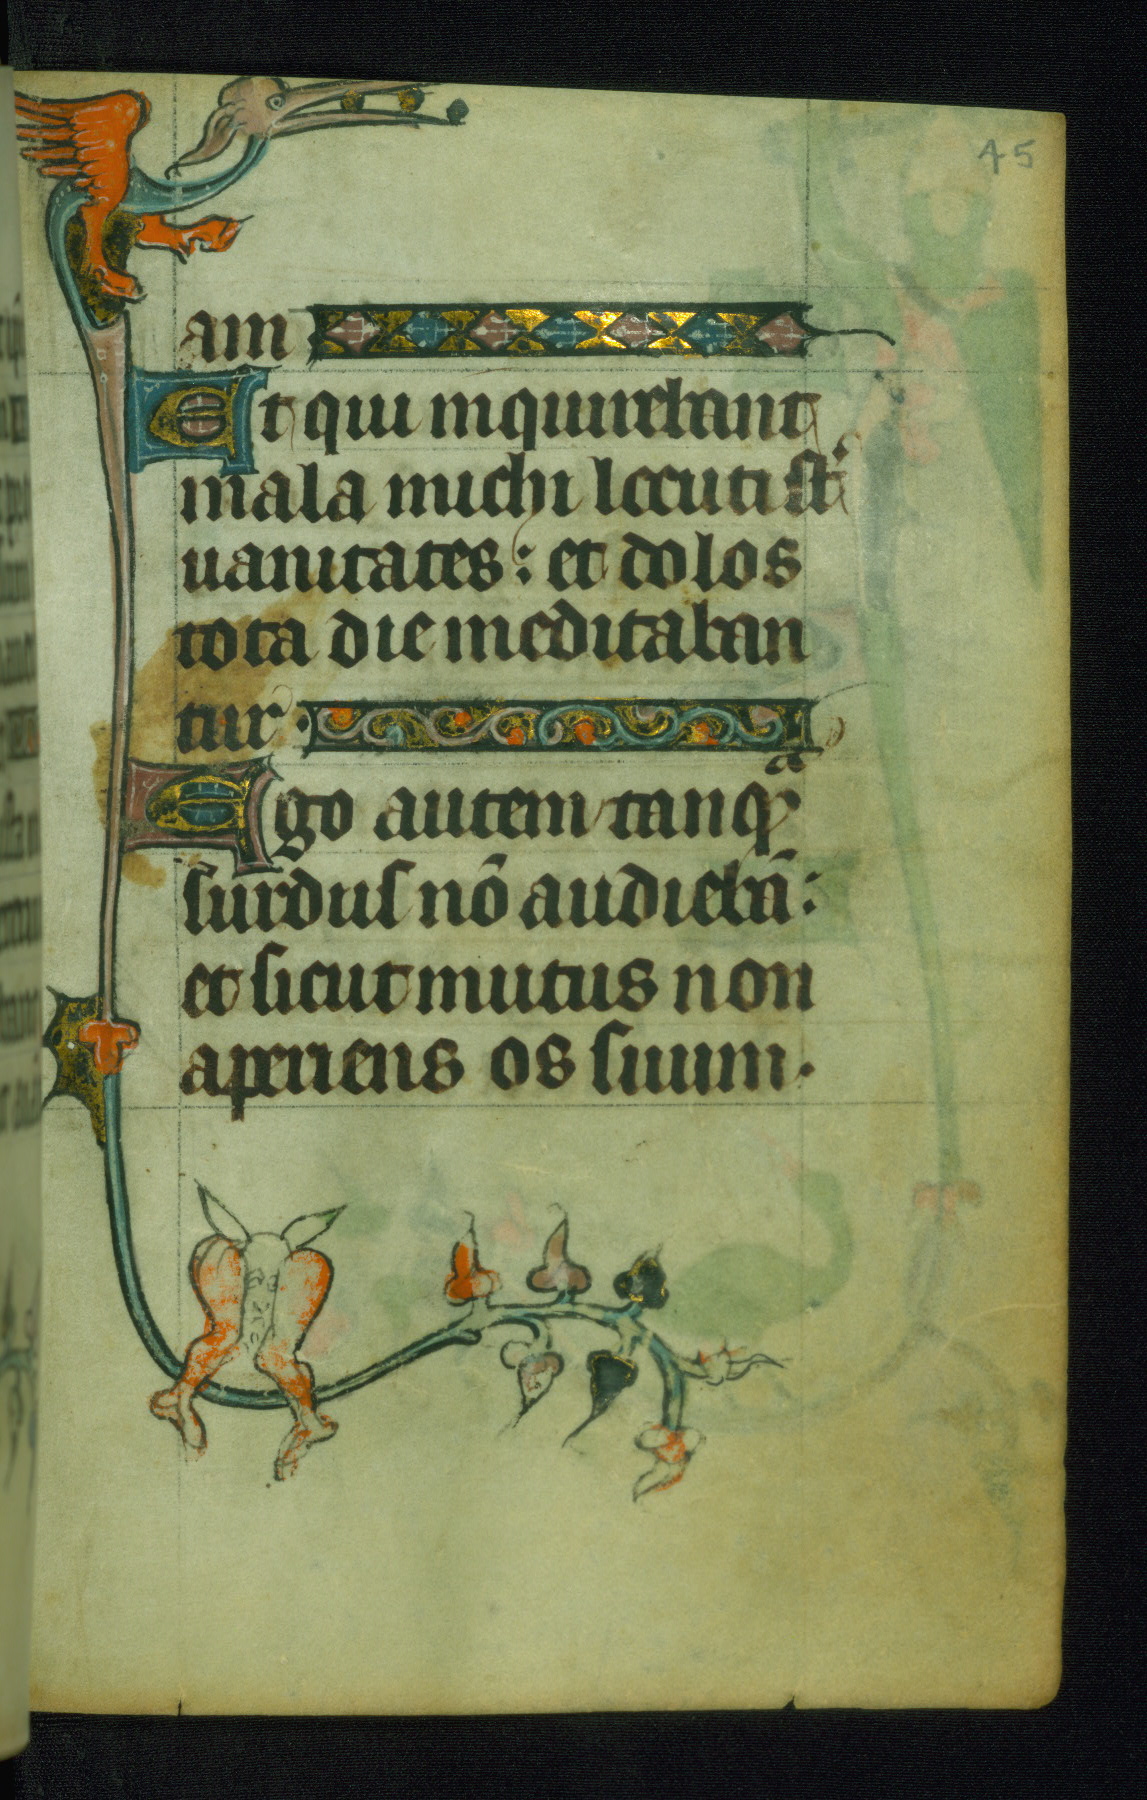 45
am
Et qui inquirebant
mala michi locuti st̄
uanitates: et dolos
tota die meditaban
tur.
Ego autem tanqᷓ
surdus nō audiebā:
et sicut mutus non
aperiens os suum.